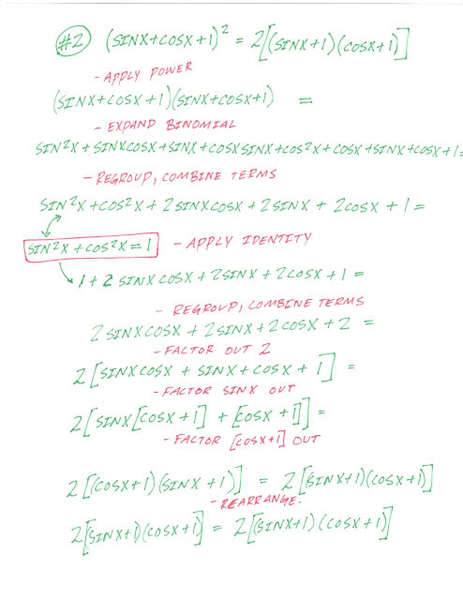 #2 (SINX+COSX+1)² = 2[(SINX+1)(COSX+1)]
- APPLY POWER
(SINX+COSX+1)(SINX+COSX+1) =
- EXPAND BINOMIAL
SIN²X+SINXCOSX+SINX+COSXSINX+COS²X+COSX+SINX+COSX+1=
- REGROUP, COMBINE TERMS
SIN²X+COS²X+2SINXCOSX+2SINX+2COSX+1=
SIN²X+COS²X=1 - APPLY IDENTITY
1+2SINXCOSX+2SINX+2COSX+1=
- REGROUP, COMBINE TERMS
2SINXCOSX+2SINX+2COSX+2 =
- FACTOR OUT 2
2[SINXCOSX+SINX+COSX+1] =
- FACTOR SINX OUT
2[SINX[COSX+1]+[COSX+1]] =
- FACTOR [COSX+1] OUT
2[(COSX+1)(SINX+1)] = 2[(SINX+1)(COSX+1)]
- REARRANGE.
2[(SINX+1)(COSX+1)] = 2[(SINX+1)(COSX+1)]